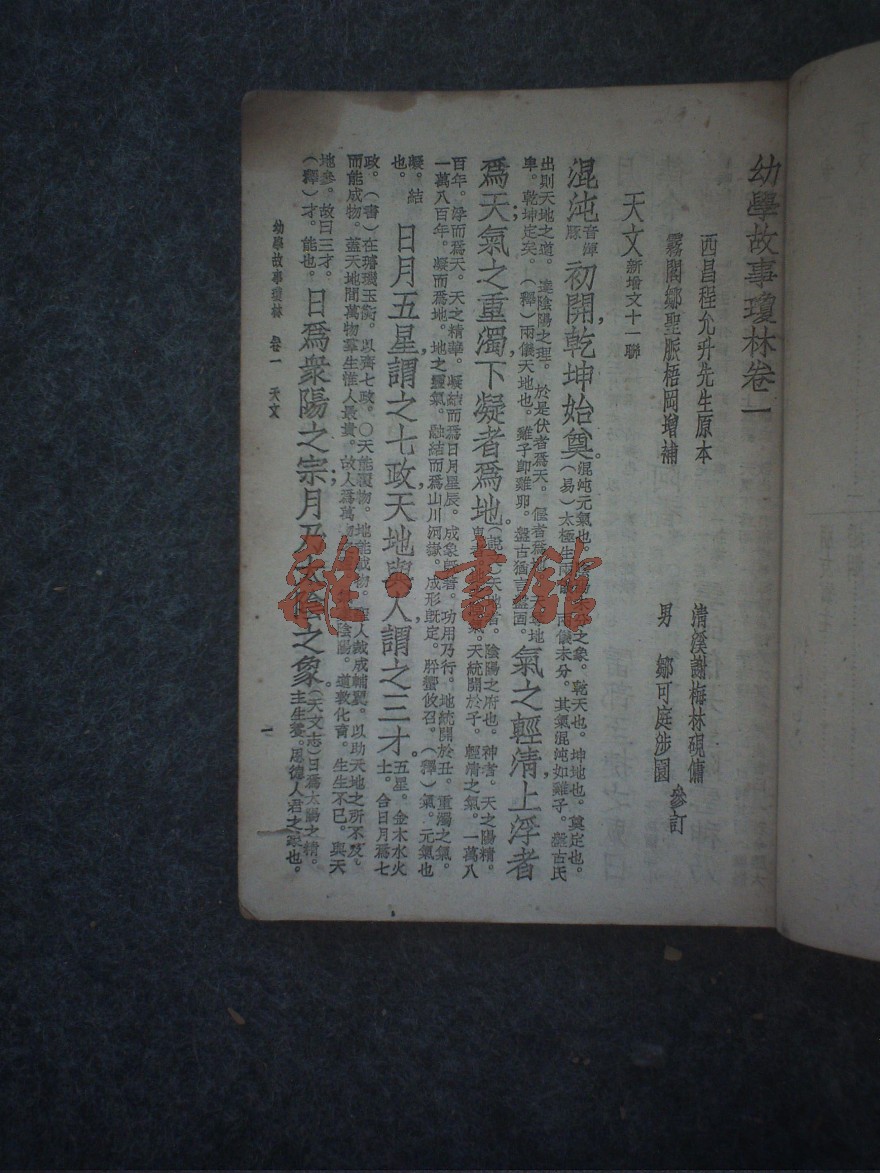 幼學故事瓊林卷一
西昌程允升先生原本
霧閣鄒聖脈梧岡增補
清溪謝梅林硯傭
男 鄒可庭涉園
參訂
天文 新增文十一聯
混沌音渾豚初開，乾坤始奠。混沌元氣也
之象。乾天也。坤地也。奠定也。
（易）太極生兩儀。兩儀未分。其氣混沌如雞子。盤古氏
出則天地之道。達陰陽之理。於是伏者爲天。偃者爲地
卑。乾坤定矣。（釋）兩儀天地也。雞子即雞卵。盤古猶言盤固。
氣之輕清上浮者
爲天；氣之重濁，下凝者爲地。
天地者。陰陽之府也。神者。天之陽精。
天統開於子。輕清之氣。一萬八
百年。浮而爲天。天之精華。凝結而爲日月星辰。成象既著。功用乃行。地統開於丑。重濁之氣。
一萬八百年。凝而爲地。地之靈氣。融結而爲山川河嶽。成形既定。肸蠁攸召。（釋）氣。元氣也
凝。結也。
日月五星，謂之七政；天地與人，謂之三才。
五星。金木水火土。合日月爲七
政。（書）在璿璣玉衡。以齊七政。〇天能覆物。地能載物。聖人裁成輔翼。以助天地之所不及。
而能成物。蓋天地間萬物羣生惟人最貴。故人爲萬物
陰陽。道敦化育。生生不已。與天
地參。故曰三才。
（釋）才。能也。
日爲衆陽之宗；月乃太陰之象。
（天文志）日爲太陽之精。
主生養。恩德人君之象也。
幼學故事瓊林 卷一 天文
一
雜·書館